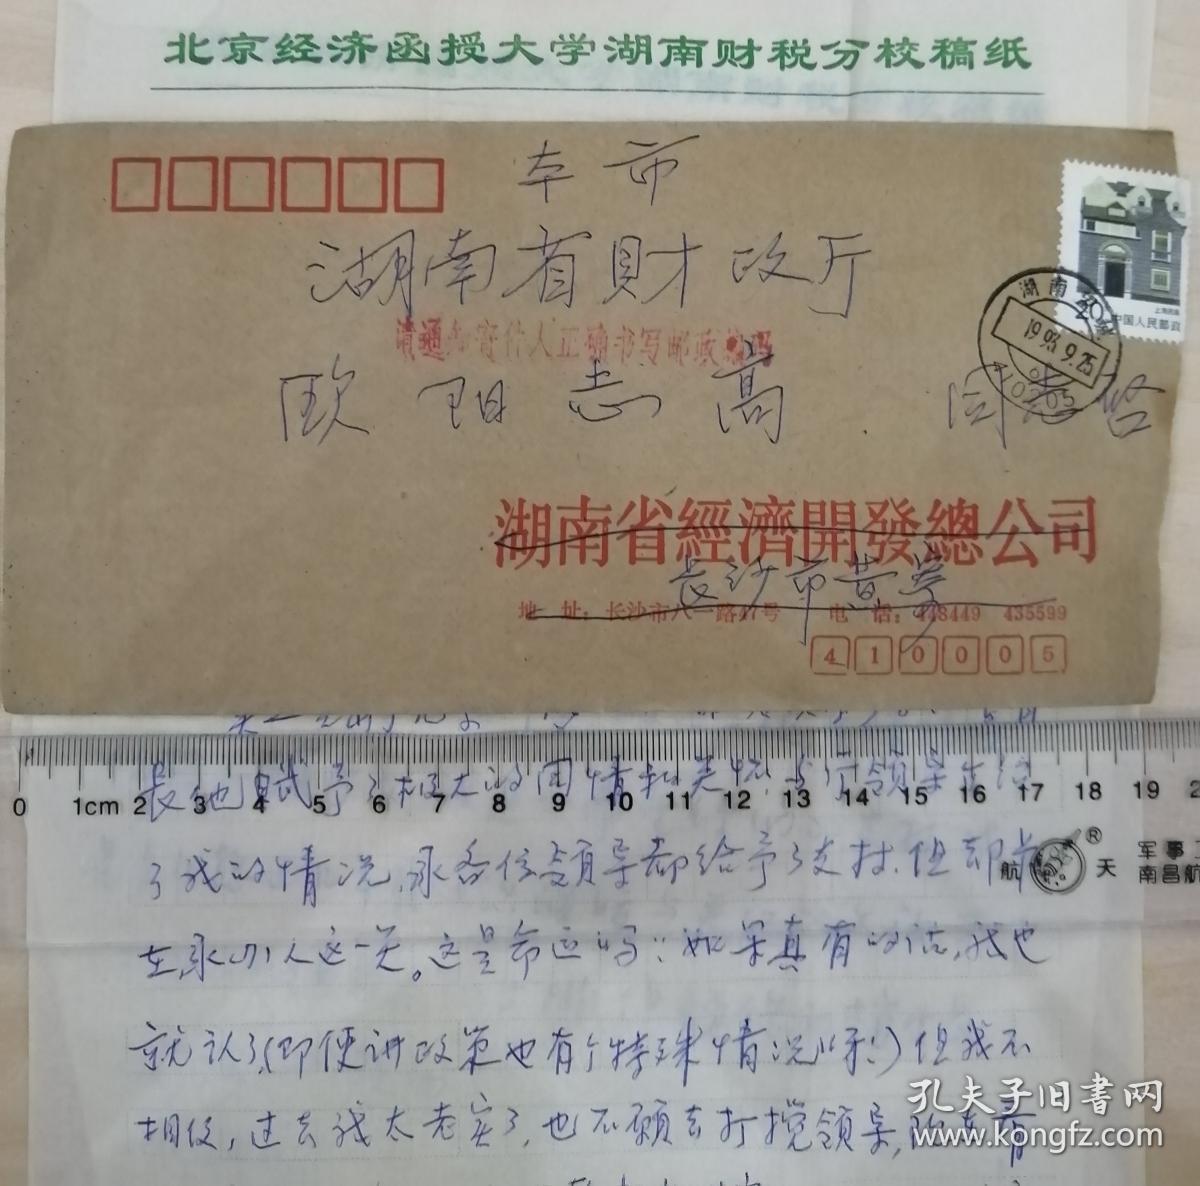 北京经济函授大学湖南财税分校稿纸
本市
湖南省财政厅
请通知寄件人正确书写邮政编码
欧阳志高 同志启
上海民居
中国人民邮政
湖南
1993.9.25
湖南省經濟開發總公司
长沙市黄
地 址：长沙市八一路47号 电 话：448449 435599
410005
0 1cm 2 3 4 5 6 7 8 9 10 11 12 13 14 15 16 17 18 19 2
长他赋予了极大的同情和关怀，与厅领导
了我的情况，承各位领导都给予了支持，但却卡
在承 人这一关。这是命运吗？如果真有的话，我也
就认了（即便讲政策也有个特殊情况嘛！）但我不
相信，过去我太老实了，也不愿去打搅领导，
航天®
军事工
南昌航
孔夫子旧书网
www.kongfz.com